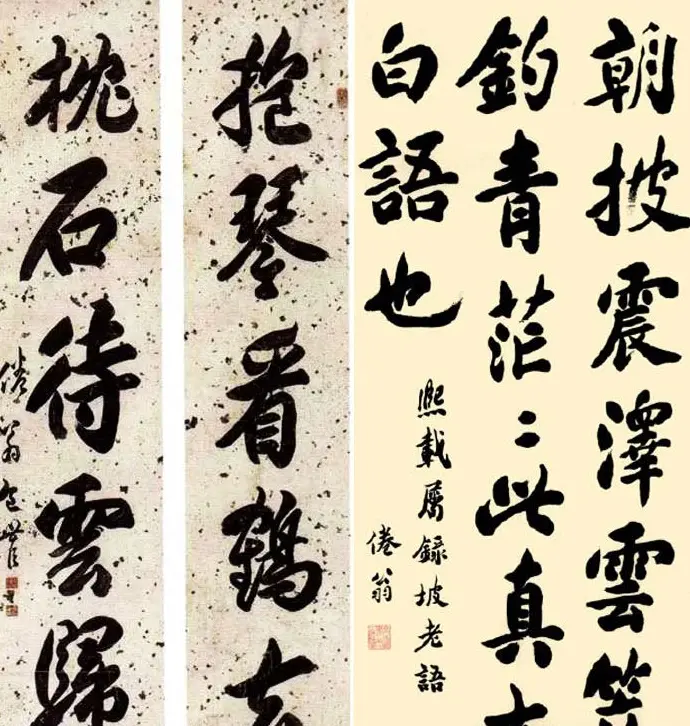 朝披震澤雲笠
釣青茫〻此真太
白語也
熙載屬錄坡老語
倦翁
抱琴看鶴去
枕石待雲歸
倦翁包世臣